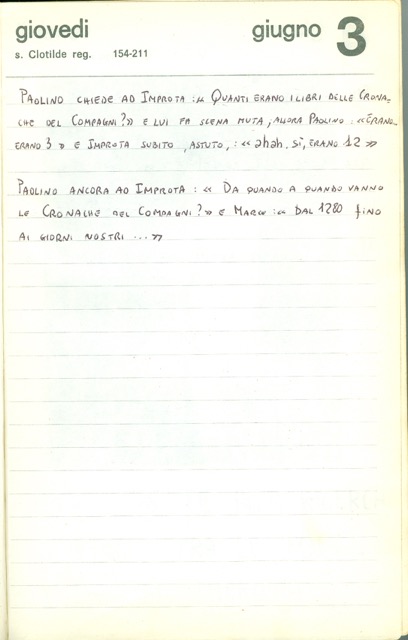 giovedi giugno 3
s. Clotilde reg. 154-211
PAOLINO CHIEDE AD IMPROTA :« QUANTI ERANO I LIBRI DELLE CRONA=
CHE DEL COMPAGNI?» E LUI FA SCENA MUTA, ALLORA PAOLINO : «ERANO..
ERANO 3 » E IMPROTA SUBITO, ASTUTO, : « ahah, sì, ERANO 12 »
PAOLINO ANCORA AD IMPROTA : « DA QUANDO A QUANDO VANNO
LE CRONACHE DEL COMPAGNI?» E MARCO :« DAL 1280 fINO
AI GIORNI NOSTRI ... »